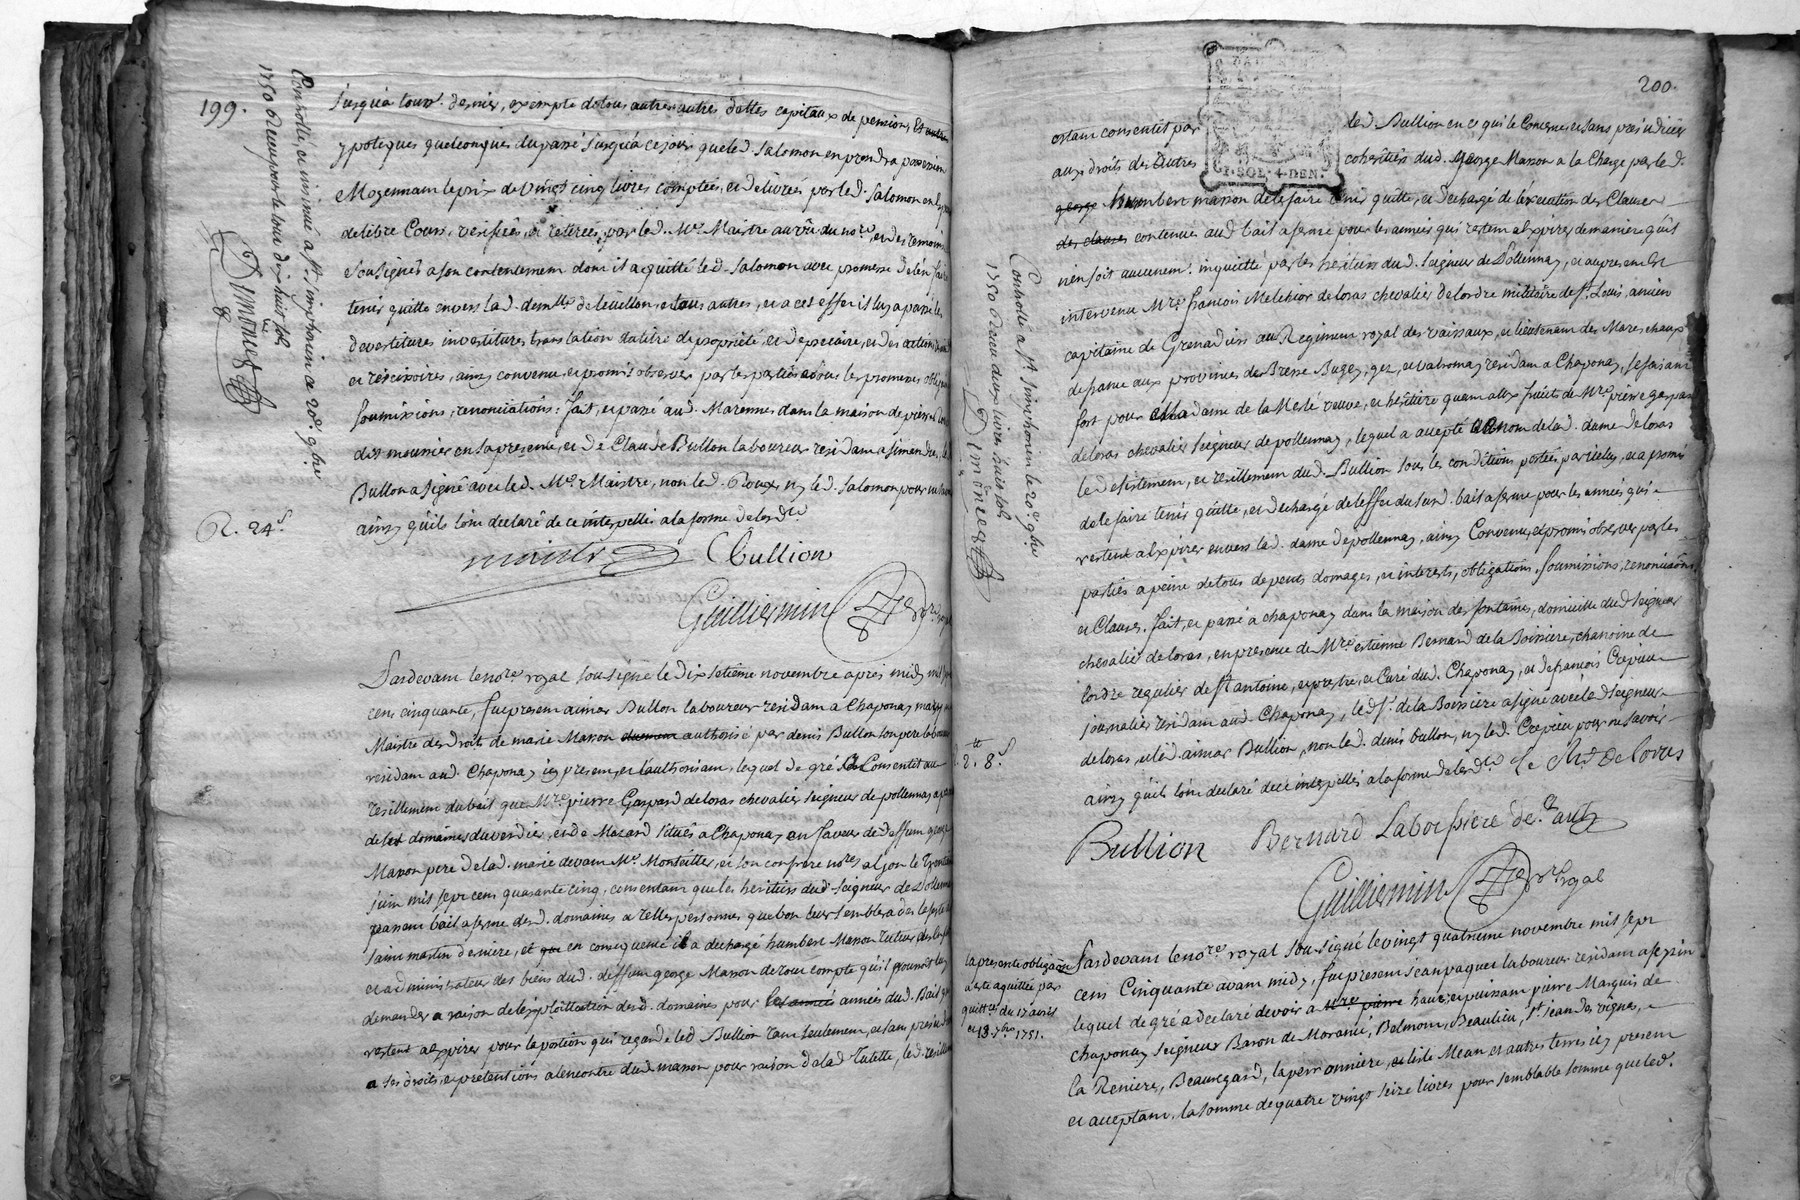 199.
Controllé, et insinué a st. simphorien ce 20e. 9bre
1750 Receu pour le tout dix huit sols
Dimonet
jusqu'a tous dernier, exempte de tous autres autres dettes capitaux de pensions, et autres
ypoteques quelconques du passé jusqu'a ce jour que led. Salomon en prendra possession
Moyennant le prix de vingt cinq livres comptées, et delivrées par led. Salomon en
de libre Cours, verifiées, et retirées par led. Mre Maistre au vû du nore, et des temoins
Sousignés a son contentement dont il a quitté led. Salomon avec promesse de l'en faire
tenir quitte envers lad. demlle de leuillon, et tous autres, et a cet effet il luy a passé les
devertitures investitures translation du titre de proprieté, et de precaire, et des actions
et rescisoires, ainsy convenu, et promis observer par les parties a tous les promesses obligations
soumissions, renonciations: fait, et passé aud. Marennes dans la maison de pierre
des mounier en sa presence, et de Claude Bullon laboureur residant a simandres, led.
Bullon a signé avec led. Mre Maistre, non led. Roux, ny led. Salomon pour ne
ainsy qu'ils l'ont declaré de ce interpellés a la forme de l'ordce
R. 24s.
maistre Cbullion
Guilliermin nre royal
Pardevant le nore royal sousigné le dix setième novembre après midy mil sept
cens cinquante, fut present aimar Bullon laboureur residant a Chaponay mary
Maistre des droits de marie Masson authorisé par denis Bullon son pere laboureur
residant aud. Chaponay icy present, et l'authorisant, lequel de gré a Consentit au
resillement du bail que Mre pierre Gaspard de loras chevalier seigneur de pollennay a passé
de les domaines du verdier, et de Mozard situés a Chaponay en faveur de deffunt george
Masson pere de lad. marie devant Me. Monteiller, et son confrere nores a lyon le trente
juin mil sept cens quarante cinq, consentant que les heritiers dud. seigneur de Pollennay
passent bail a ferme desd. domaines a telles personnes que bon leur semblera des la feste de
saint martin derniere, et que en consequence il a dechargé humbert Masson tuteur des
et administrateur des biens dud. deffunt george Masson de tout compte qu'il pourroit luy
demander a raison de l'exploittation desd. domaines pour les années années dud. Bail qui
restent a expirer pour la portion qui regarde led Bullion tant seulement, et sans prejudice
a ses droits, et pretentions a l'encontre dud. masson pour raison de lad tutelle, led. resillement
200.
1. SOL. 4 DEN.
estant consentit par led Bullion en ce qui le Concerne, et sans prejudicier
aux droits des Autres coheritiers dud. George Masson a la Charge par led.
george Humbert masson de le faire tenir quitte, et dechargé de l'execution des Clauses
des clauses contenues aud bail a ferme pour les années qui restent a expirer de maniere qu'il
n'en soit aucunemt. inquietté par les heritiers dud. seigneur de Pollennay, et au present Est
intervenu Mre. francois Melchior de loras chevalier de l'ordre militaire de St. Louis, ancien
capitaine de Grenadiers au Regiment royal des vaissaux, et lieutenant des Mareschaux
de france aux provinces de Bresse Bugey, gex, et valromay residant a Chaponay, se faisant
fort pour dame de la Meslé veuve, et heritiere quant aux fruits de Mre. pierre gaspard
de loras chevalier seigneur de pollennay, lequel a accepté au nom de lad. dame de loras
le desistement, et resillement dud. Bullion sous les conditions portées par icelluy, et a promis
de le faire tenir quitte, et dechargé de l'effet du susd. bail a ferme pour les années qui
restent a expirer envers lad. dame de pollennay, ainsy Convenu, et promis observer par les
parties a peine de tous depents domages, et interests, obligations, soumissions, renonciaõns,
et Clauses. fait, et passé a chaponay dans la maison des fontaines, domicille dud seigneur
chevalier de loras, en presence de Mre estienne Bernard de la Boissiere, chanoine de
l'ordre regulier de St antoine, et prestre, et Curé dud. Chaponay, et de francois Crepieu
journalier residant aud. Chaponay, led Sr. de la Boissiere a signé avec led seigneur
de loras, et led. aimar Bullion, non led. denis bullon, ny led. Crepieu pour ne savoir
ainsy qu'ils l'ont declaré de ce interpellés a la forme de l'ordce Le Chr. De loras
Controllé a st. simphorien le 20e. 9bre
1750 Receu deux livres huict sols
Dimonet
R. 2tt. 8s.
Bullion Bernard Laboissiere de st ant.
Guilliermin nre royal
la presente obligaõn
a esté aquittée par
quittces du 17 avril
et 13. 7bre 1751.
Pardevant le nore royal sousigné le vingt quatrieme novembre mil sept
cens Cinquante avant midy, fut present jean paquet laboureur residant a seprin
lequel de gré a declaré devoir a Mre pierre haut, et puissant pierre Marquis de
chaponay seigneur Baron de Morancé, Belmont, Beaulieu, St jean des vignes,
la Reniere, Beauregard, la perronniere, et lisle Mean et autres terres icy present
et acceptant, la somme de quatre vingt seize livres pour semblable somme que led.